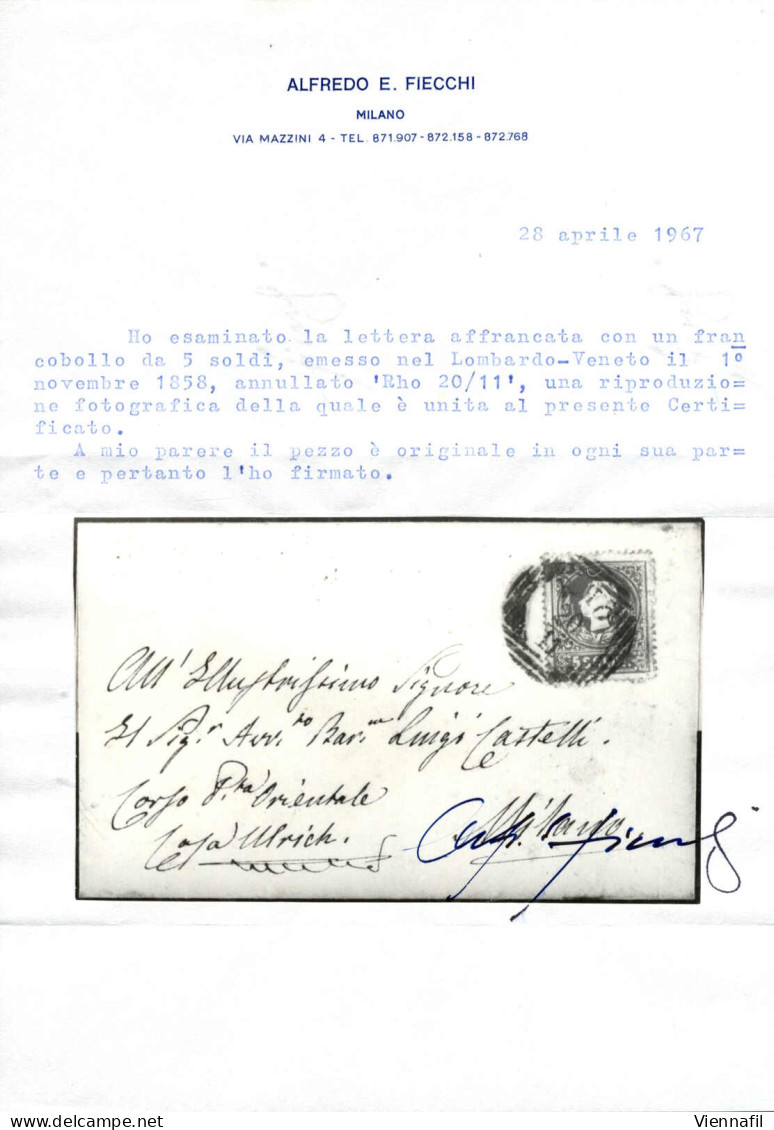 ALFREDO E. FIECCHI
MILANO
VIA MAZZINI 4 - TEL. 871.907 - 872.158 - 872.768
28 aprile 1967
Ho esaminato la lettera affrancata con un fran
cobollo da 5 soldi, emesso nel Lombardo-Veneto il 1º
novembre 1858, annullato 'Rho 20/11', una riproduzio=
ne fotografica della quale è unita al presente Certi=
ficato.
A mio parere il pezzo è originale in ogni sua par=
te e pertanto l'ho firmato.
All' Illustrissimo Signore
Il Sig.r Avv.to Bar.n Luigi Castelli.
Corso P.ta Orientale
Casa Ulrich.
Milano
Viennafil